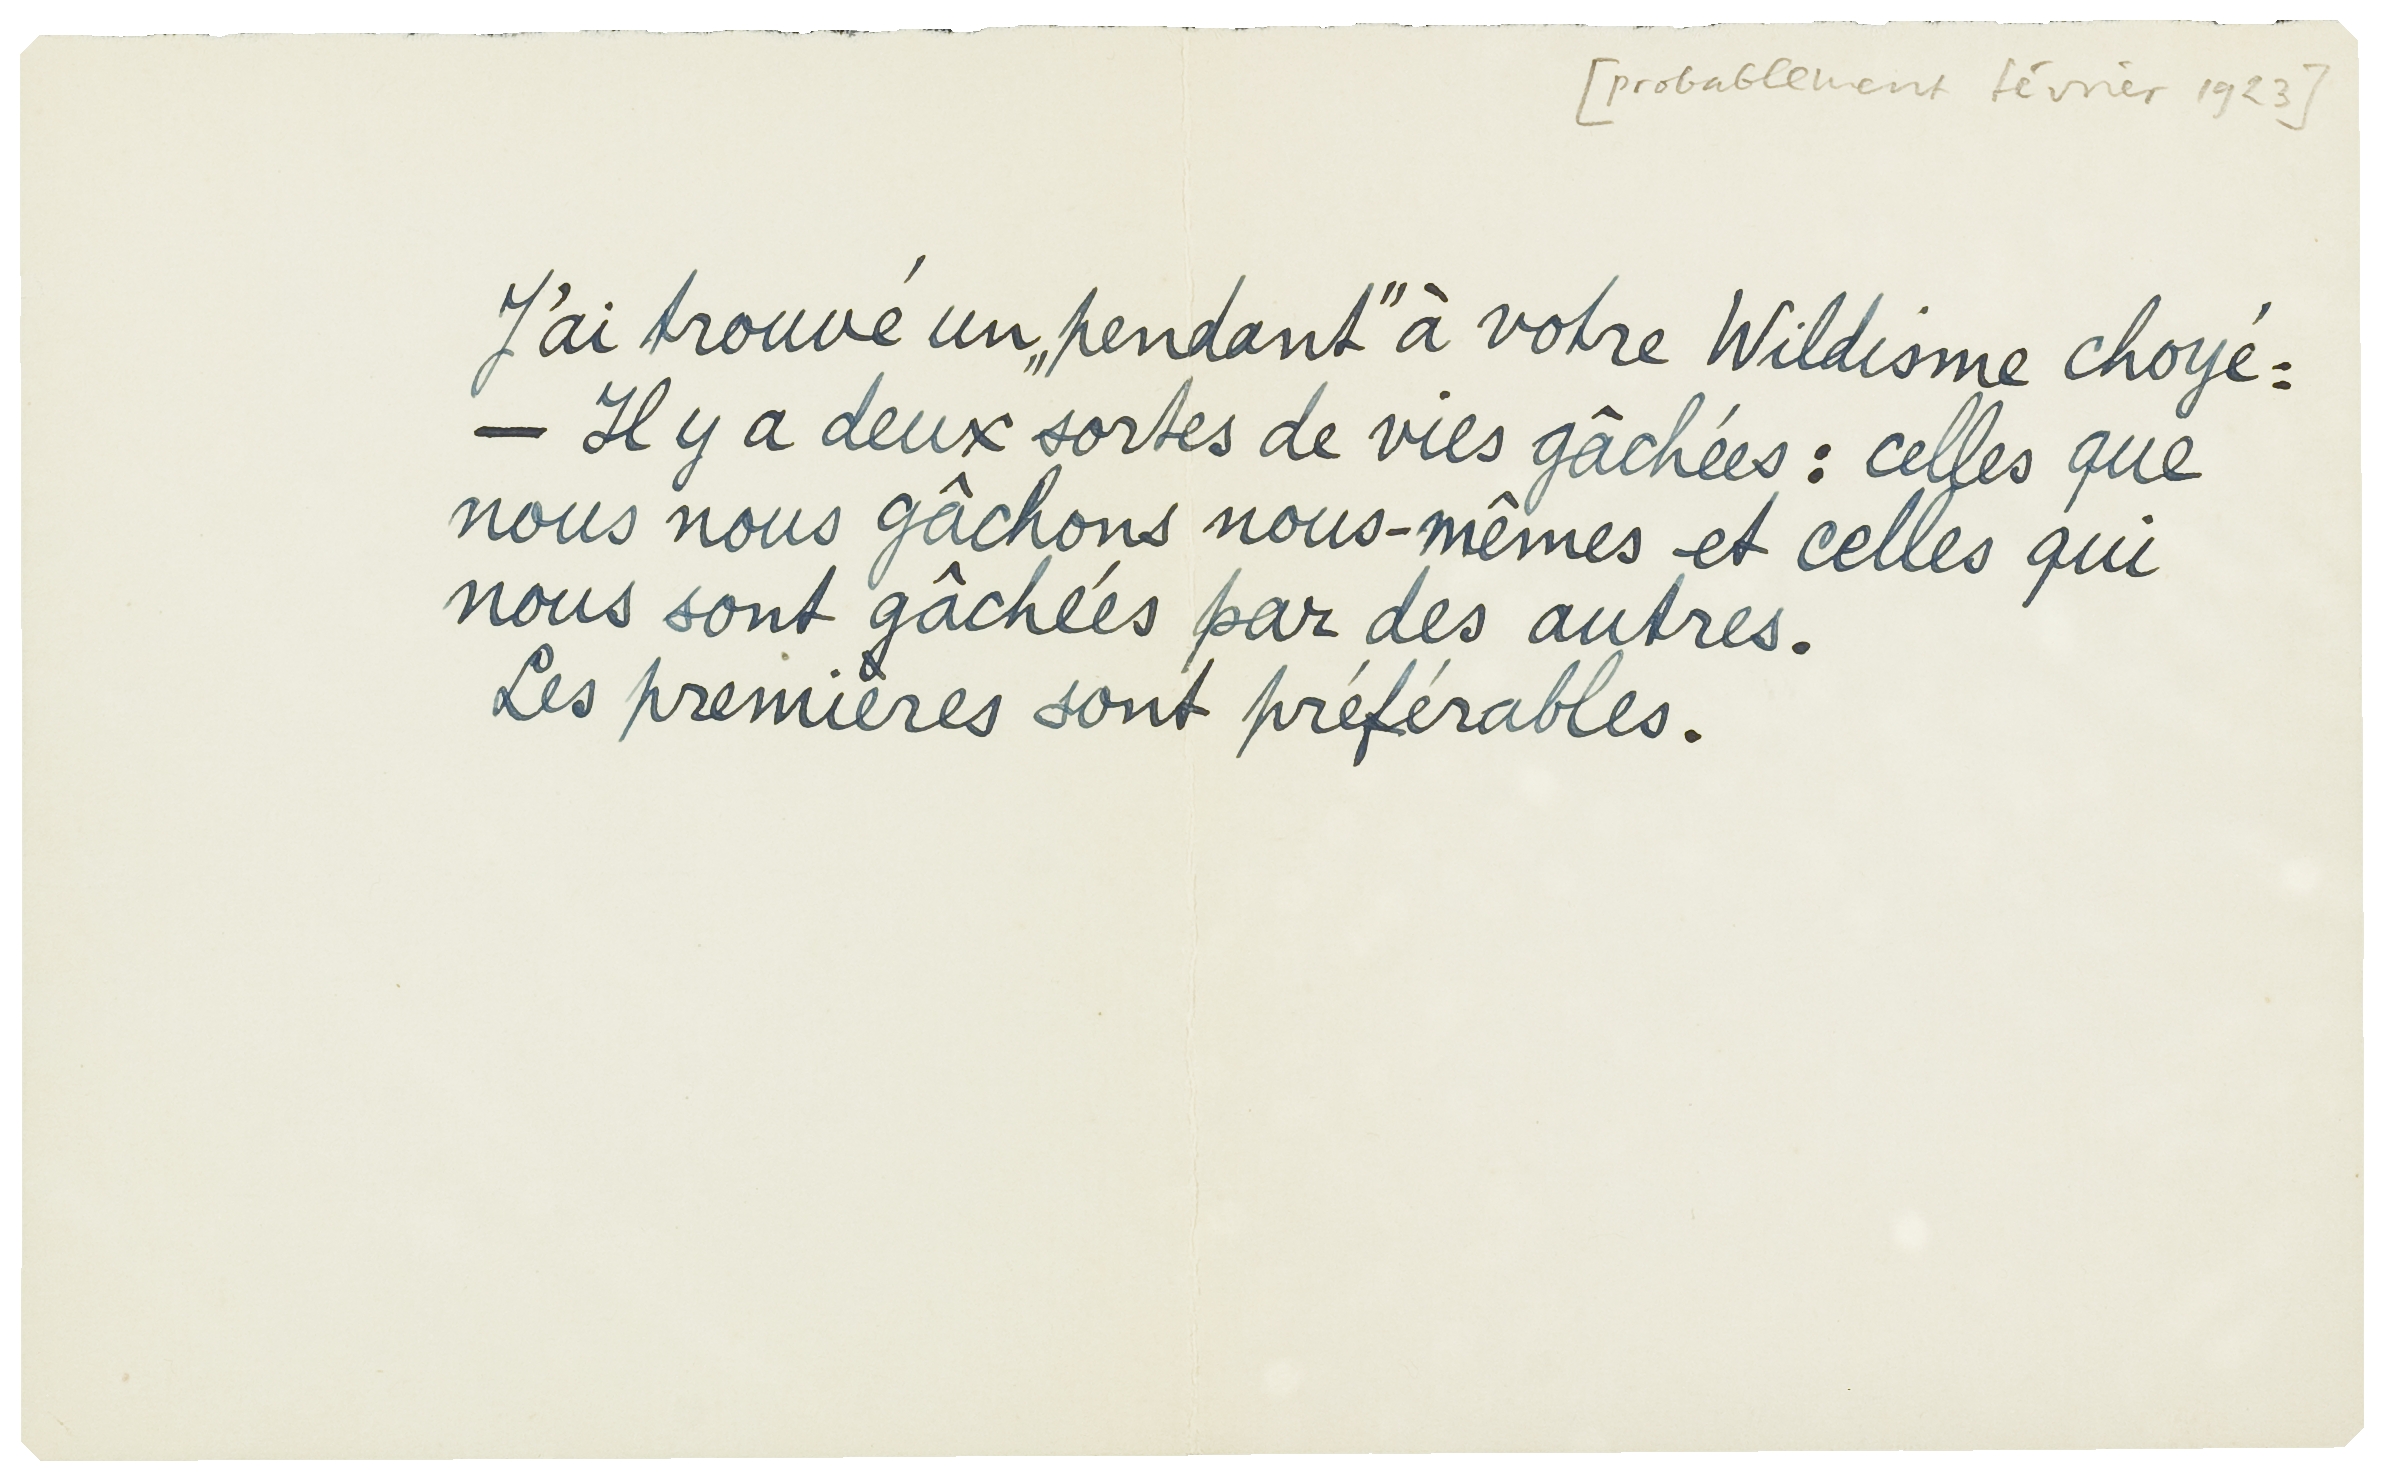 [probablement février 1923]
J'ai trouvé un „pendant” à votre Wildisme choyé:
— Il y a deux sortes de vies gâchées: celles que
nous nous gâchons nous-mêmes et celles qui
nous sont gâchées par des autres.
Les premières sont préférables.